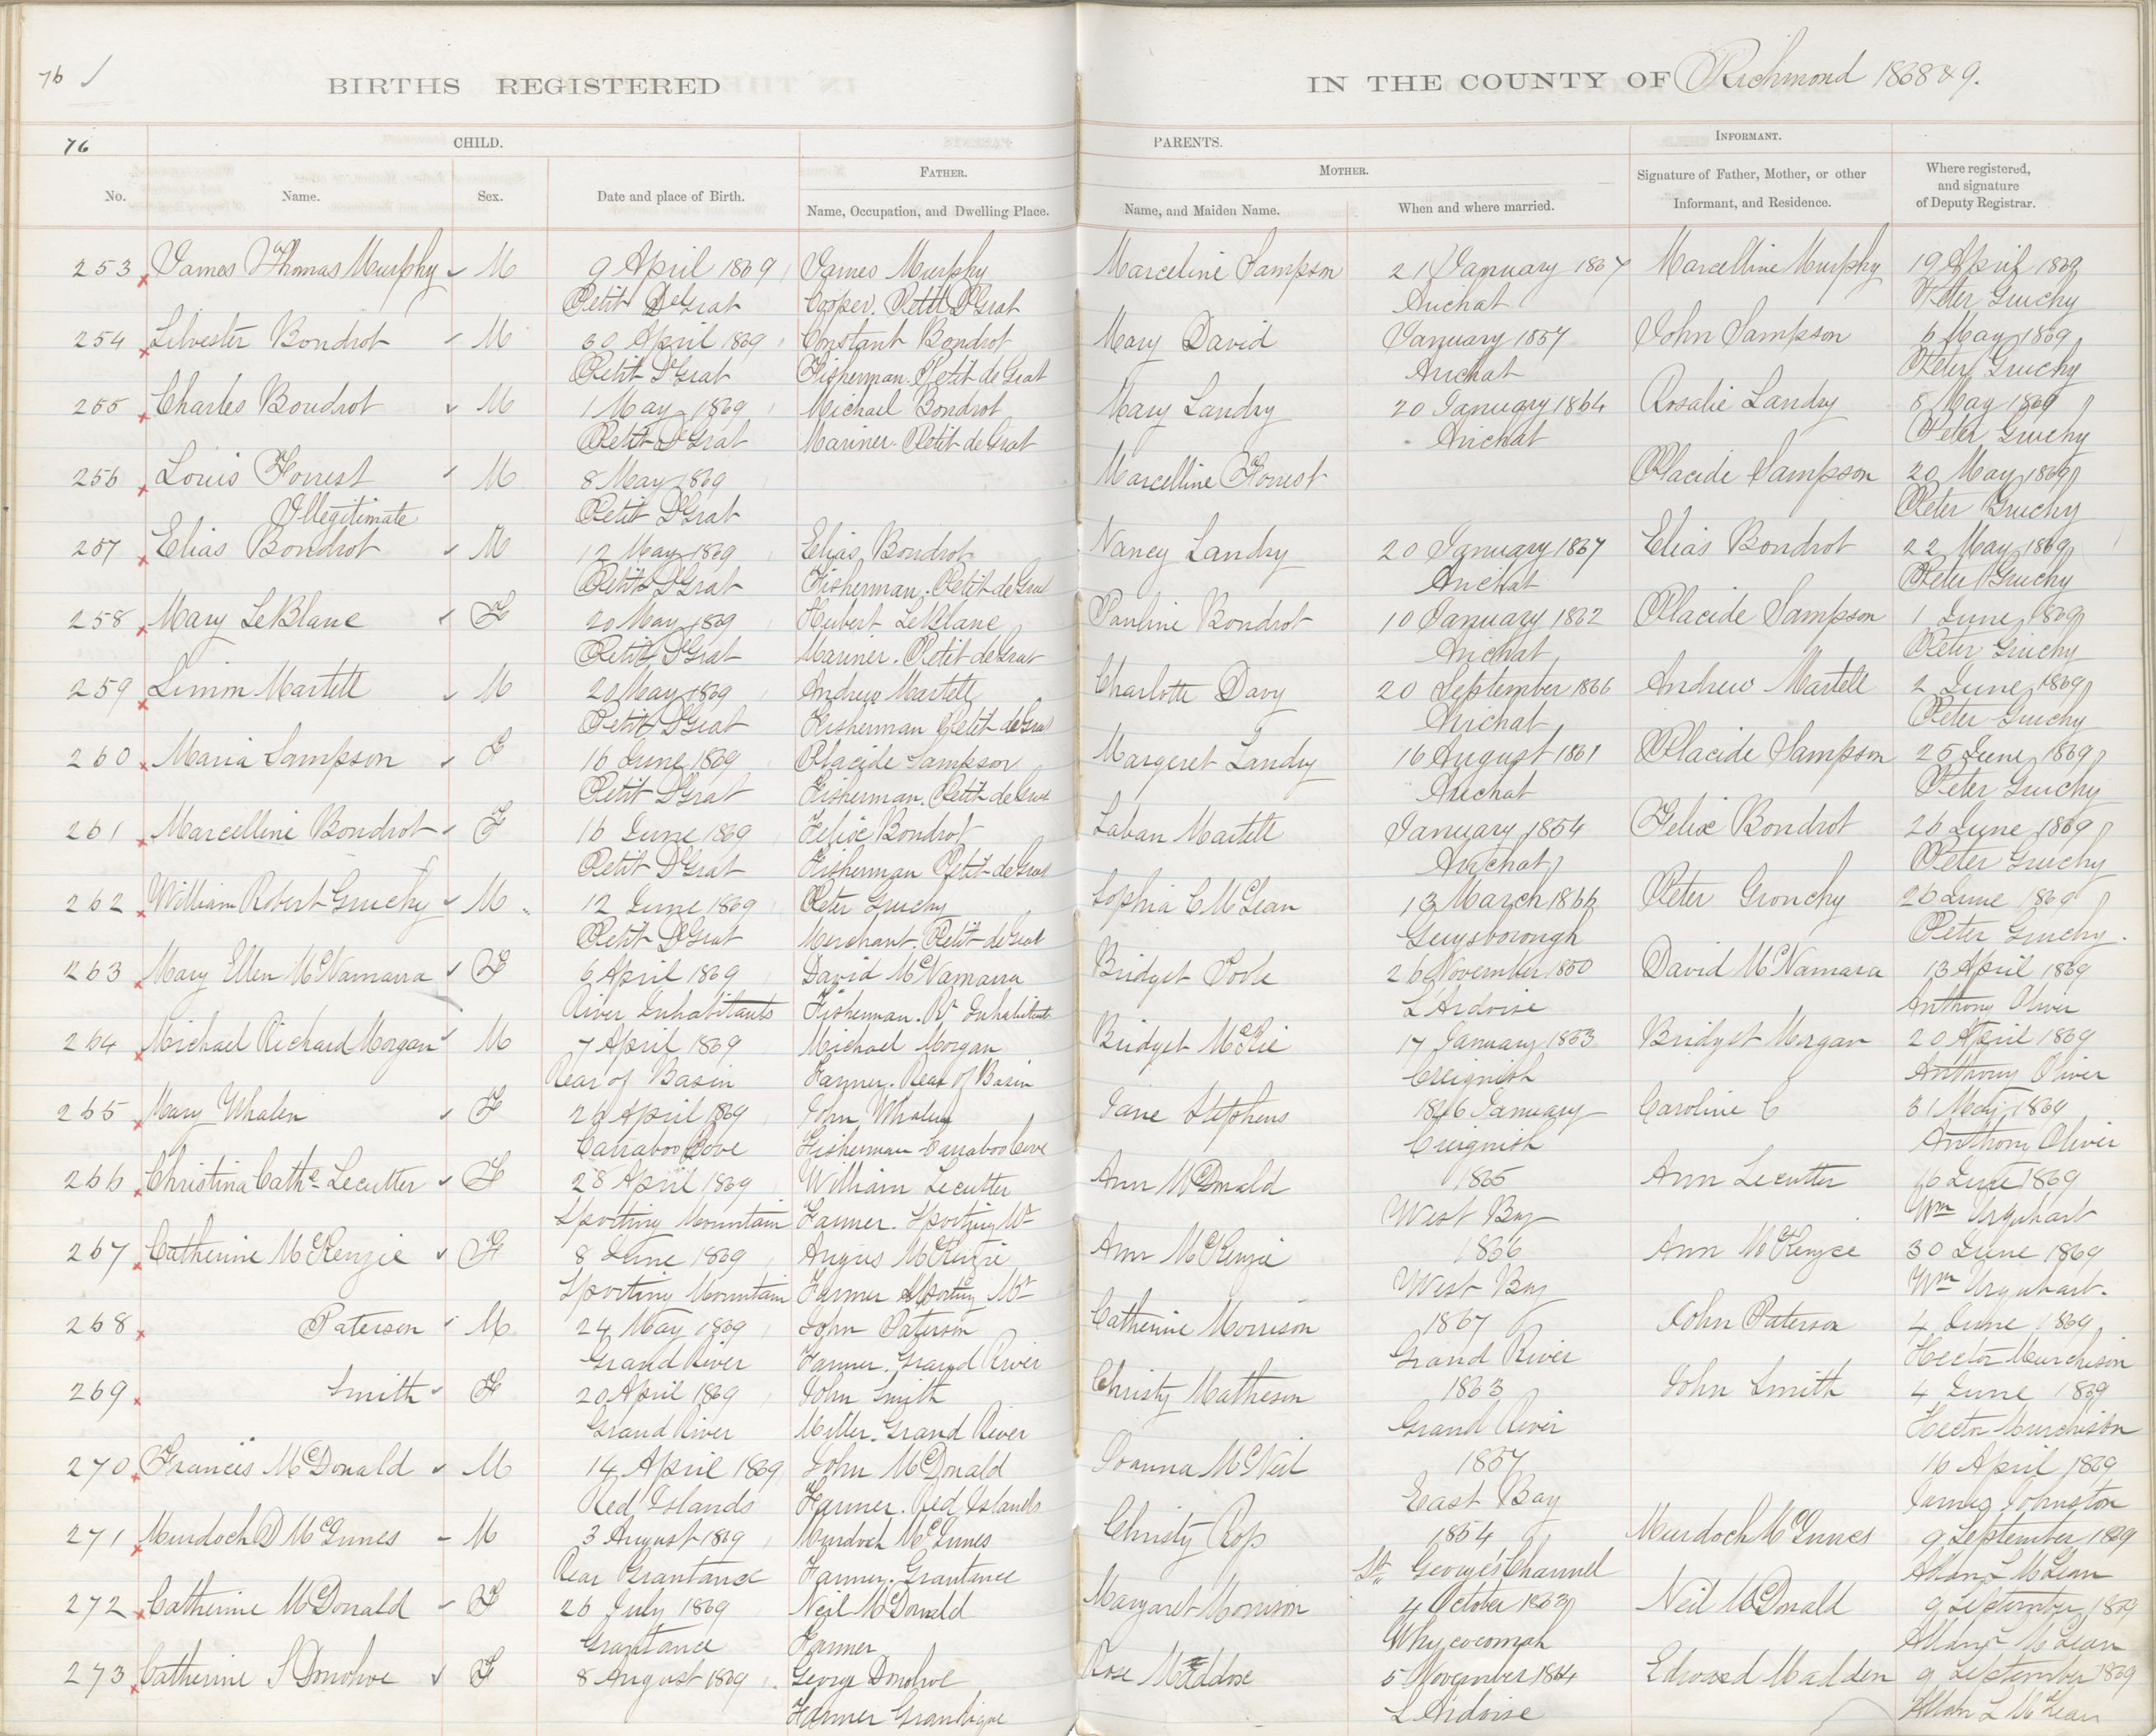 76
BIRTHS REGISTERED IN THE COUNTY OF Richmond 1868 & 9.
76
CHILD. PARENTS. INFORMANT.
No. Name. Sex. Date and place of Birth. FATHER. MOTHER. Signature of Father, Mother, or other Informant, and Residence. Where registered, and signature of Deputy Registrar.
Name, Occupation, and Dwelling Place. Name, and Maiden Name. When and where married.
253 James Thomas Murphy M 9 April 1869 James Murphy Marceline Sampson 21 January 1867 Marcelline Murphy 19 April 1869
Petit DeGrat Cooper. Petit D'Grat Arichat Peter Gruchy
254 Silvester Boudrot M 30 April 1869 Constant Boudrot Mary David January 1857 John Sampson 6 May 1869
Petit D'Grat Fisherman. Petit de Grat Arichat Peter Gruchy
255 Charles Boudrot M 1 May 1869 Michael Boudrot Mary Landry 20 January 1864 Rosalie Landry 8 May 1869
Petit D'Grat Mariner. Petit de Grat Arichat Peter Gruchy
256 Louis Forrest M 8 May 1869 Marcelline Forrest Placide Sampson 20 May 1869
Illegitimate Petit D'Grat Peter Gruchy
257 Elias Boudrot M 12 May 1869 Elias Boudrot Nancy Landry 20 January 1867 Elias Boudrot 22 May 1869
Petit D'Grat Fisherman. Petit de Grat Arichat Peter Gruchy
258 Mary LeBlanc F 20 May 1869 Hubert LeBlanc Pauline Boudrot 10 January 1862 Placide Sampson 1 June 1869
Petit D'Grat Mariner. Petit de Grat Arichat Peter Gruchy
259 Simon Martell M 20 May 1869 Andrew Martell Charlotte Davy 20 September 1866 Andrew Martell 2 June 1869
Petit D'Grat Fisherman Petit de Grat Arichat Peter Gruchy
260 Maria Sampson F 16 June 1869 Placide Sampson Margeret Landry 16 August 1861 Placide Sampson 25 June 1869
Petit D'Grat Fisherman. Petit de Grat Arichat Peter Gruchy
261 Marcelline Boudrot F 16 June 1869 Felix Boudrot Laban Martell January 1854 Felix Boudrot 26 June 1869
Petit D'Grat Fisherman Petit de Grat Arichat Peter Gruchy
262 William Robert Gruchy M 12 June 1869 Peter Gruchy Sophia C McLean 13 March 1866 Peter Grouchy 26 June 1869
Petit D'Grat Merchant. Petit de Grat Guysborough Peter Gruchy.
263 Mary Ellen McNamarra F 6 April 1869 David McNamarra Bridget Toole 26 November 1850 David McNamara 13 April 1869
River Inhabitants Fisherman. Rr Inhabitants L'Ardoise Anthony Oliver
264 Michael Richard Morgan M 7 April 1869 Michael Morgan Bridget McKie 17 January 1853 Bridget Morgan 20 April 1869
Rear of Basin Farmer. Rear of Basin Creignish Anthony Oliver
265 Mary Whalen F 26 April 1869 John Whalen Jane Stephens 1846 January Caroline C 31 May 1869
Carraboo Cove Fisherman Carraboo Cove Creignish Anthony Oliver
266 Christina Cathe Lecutter F 28 April 1869 William Lecutter Ann McDonald 1865 Ann Lecutter 16 June 1869
Sporting Mountain Farmer. Sporting Mt West Bay Wm Urquhart
267 Catherine McKenzie F 8 June 1869 Angus McKenzie Ann McKenzie 1866 Ann McKenzie 30 June 1869
Sporting Mountain Farmer Sporting Mt West Bay Wm Urquhart.
268 Paterson M 24 May 1869 John Paterson Catherine Morrison 1867 John Paterson 4 June 1869
Grand River Farmer. Grand River Grand River Hector Murchison
269 Smith F 20 April 1869 John Smith Christy Matheson 1863 John Smith 4 June 1869
Grand River Miller. Grand River Grand River Hector Murchison
270 Francis McDonald M 14 April 1869 John McDonald Joanna McNeil 1857 16 April 1869
Red Islands Farmer. Red Islands East Bay James Johnston
271 Murdoch D McInnes M 3 August 1869 Murdoch McInnes Christy Ross 1854 Murdoch McInnes 9 September 1869
Rear Grantance Farmer. Grantance St. George's Channel Allan L McLean
272 Catherine McDonald F 26 July 1869 Neil McDonald Margaret Morrison 4 October 1863 Neil McDonald 9 September 1869
Grantance Farmer Whycocomah Allan L McLean
273 Catherine S Donohoe F 8 August 1869 George Donohoe Rose Maddox 5 November 1864 Edward Madden 9 September 1869
Farmer Grandique L'Ardoise Allan L McLean